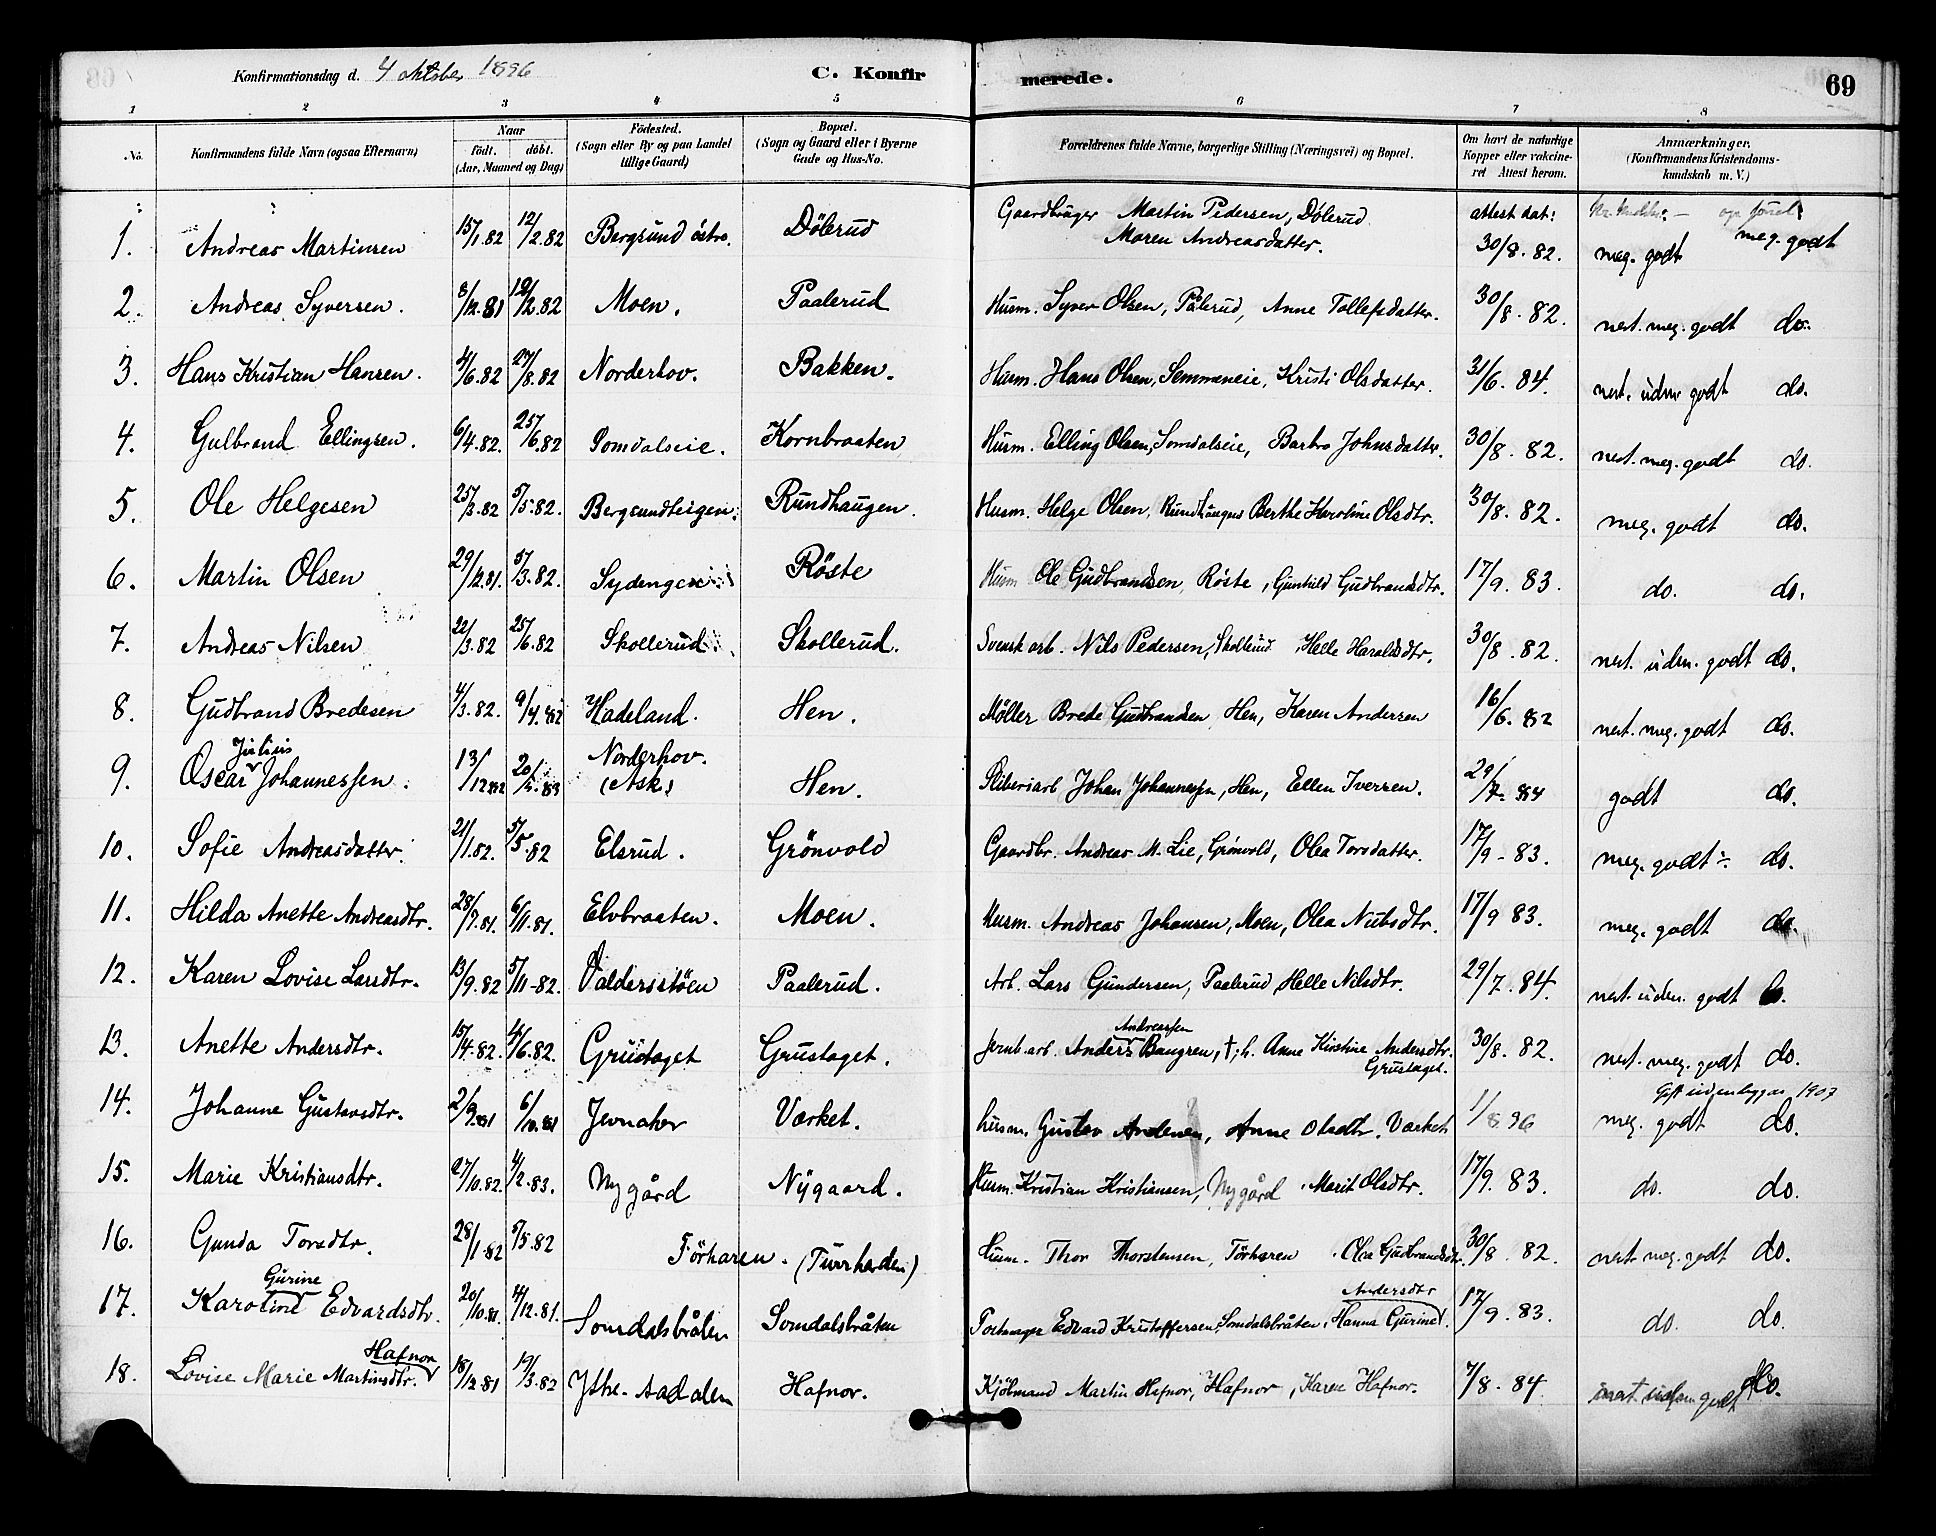 Konfirmationsdag d. 4 oktober 1896 C. Konfirmerede. 69
1 2 3 4 5 6 7 8
No. Konfirmandens fulde Navn (ogsaa Efternavn) Naar födt. döbt. (Aar, Maaned og Dag) Födested. (Sogn eller By og paa Landet tillige Gaard) Bopæl. (Sogn og Gaard eller i Byerne Gade og Hus-No. Forældrenes fulde Navne, borgerlige Stilling (Næringsvei) og Bopæl. Om havt de naturlige Kopper eller vakcineret Attest herom. Anmærkninger. (Konfirmandens Kristendomskundskab m. V.)
1. Andreas Martinsen 15/1.82 12/2.82 Bergsund östre. Dölerud Gaardbruger Martin Pedersen, Dölerud Maren Andreasdatter. attest dat: 30/8.82. meg. godt meg. godt
2. Andreas Syversen. 8/12.81 12/2.82 Moen. Paalerud Husm. Syver Olsen, Pålerud, Anne Tollefsdatter. 30/8.82. nest. meg. godt do.
3. Hans Kristian Hansen. 4/6.82 27/8.82 Norderhov. Bakken. Husm. Hans Olsen, Semmeneie, Kristi Olsdatter. 31/6.84. nest. udm. godt do.
4. Gulbrand Ellingsen. 6/4.82. 25/6.82 Somdalseie. Kornbraaten Husm. Elling Olsen, Somdalseie, Barbro Johnsdatter. 30/8.82. nest. meg. godt do.
5. Ole Helgesen 25/3.82 5/5.82. Bergsundteigen. Rundhaugen. Husm. Helge Olsen, Rundhaugen Berthe Karoline Olsdtr. 30/8.82. meg. godt do.
6. Martin Olsen 29/12.81. 5/3.82. Sydengen Röste Husm Ole Gudbrandsen, Röste, Gunhild Gudbrandsdtr. 17/9.83. do. do.
7. Andreas Nilsen 22/3.82 25/6.82 Skollerud. Skollerud. Svensk arb. Nils Pedersen, Skollerud, Helle Haraldsdtr. 30/8.82. nest. udm. godt do.
8. Gudbrand Bredesen 4/3.82. 9/4.82 Hadeland. Hen. Möller Brede Gudbrandsen, Hen, Karen Andersen 16/6.82 nest. meg. godt do.
9. Oscar Julius Johannessen. 13/12 82 20/5.83 Norderhov. (Ask) Hen. Sliberiarb Johan Johannessen, Hen, Ellen Iversen. 29/7.84 godt do.
10. Sofie Andreasdatter. 21/1.82. 5/5.82 Elsrud. Grönvold Gaardbr. Andreas M. Lie, Grönvold, Olea Torsdatter. 17/9-83. meg. godt ÷ do.
11. Hilda Anette Andreasdtr. 28/7.81. 6/11.81. Elvbraaten. Moen. Husm. Andreas Johansen, Moen, Olea Nubsdtr. 17/9 83. meg. godt do.
12. Karen Lovise Larsdtr. 13/9.82 5/11-82. Valdersstöen Paalerud. Arb. Lars Gundersen, Paalerud, Helle Nilsdtr. 29/7.84. nest. udm. godt do.
13. Anette Andersdtr. 15/4.82. 4/6.82. Grustaget Grustaget. Jernb.arb. Anders Andreassen Baugren, †, h. Anne Kirstine Andersdtr. Grustaget. 30/8.82. nest. meg. godt do.
14. Johanne Gustavsdtr. 2/9.81 6/10.81 Jevnaker Værket. husm. Gustav Andersen, Anne Olsdtr. Værket 1/8 96 meg. godt do. Gift udenbygds 1907
15. Marie Kristiansdtr. 27/10.82. 4/2.83. Nygård Nygaard. Husm. Kristian Kristiansen, Nygård, Marit Olsdtr. 17/9.83. do. do.
16. Gunda Torsdtr. 28/1.82 5/5.82 Törharen. (Turrharden) Husm. Thor Thorstensen, Törharen, Olea Gudbrandsdtr. 30/8.82. nest. meg. godt do.
17. Karoline Gurine Edvardsdtr. 20/10.81. 4/12.81. Somdalsbråten Somdalsbråten Edvard Kristoffersen, Somdalsbråten, Hanna Gurine Andersdtr. 17/9.83. do. do.
18. Lovise Marie Martinsdtr. Hafnor 18/12.81 19/3.82 Ytre-Aadalen Hafnor. Kjölmand Martin Hafnor, Hafnor, Karen Hafnor. 7/8.84. nest. udm. godt do.